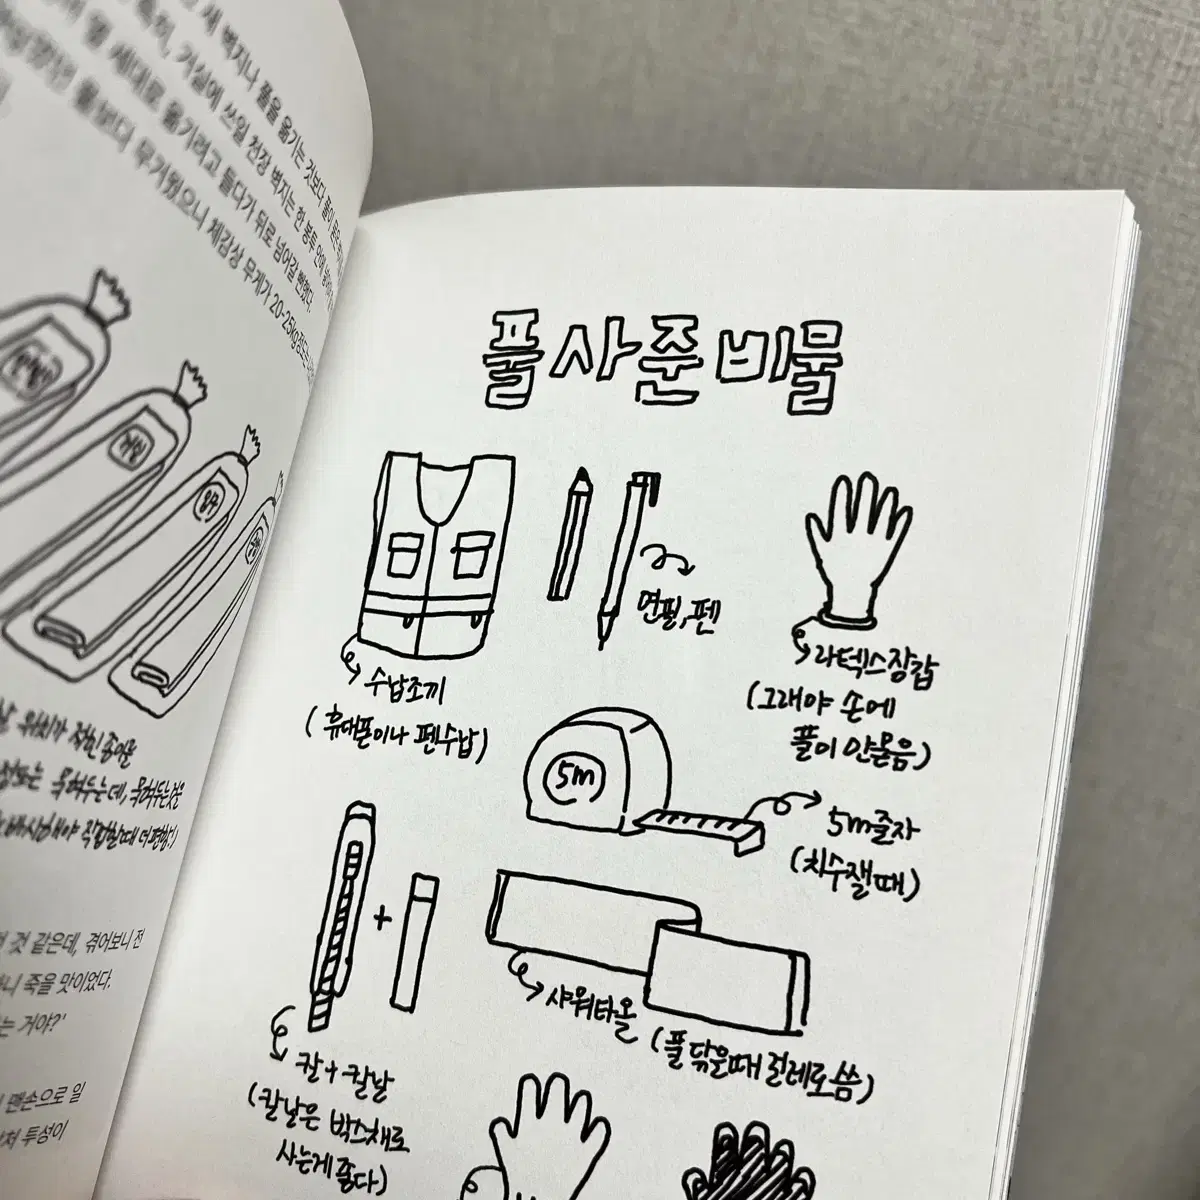 새 벽지나 풀을 옮기는 것보다 풀이
특히, 거실에 쓰일 천장 벽지는 한 봉투 안에
세대로 옮기려고 들다가 뒤로 넘어갈 뻔했다.
보다 무거웠으니 체감상 무게가 20-25kg정도는
거실
위치가 적힌 종이를
정도는 묵혀두는데, 묵혀두는것은
작업할때 더 편함!)
것 같은데, 겪어보니 전
죽을 맛이었다.
는 거야?'
맨손으로 일
투성이
풀사준비물
연필, 펜
라텍스장갑
(그래야 손에
풀이 안묻음)
수납조끼
(휴대폰이나 펜수납)
5m
5m줄자
(치수잴때)
+
샤워타올 (풀 닦을때 걸레로 씀)
칼+칼날
(칼날은 박스채로
사는게 좋다)